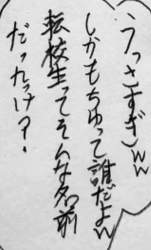 うっさすぎｗｗ
しかもちゅって誰だよｗ
転校生ってそんな名前
だったっけ？